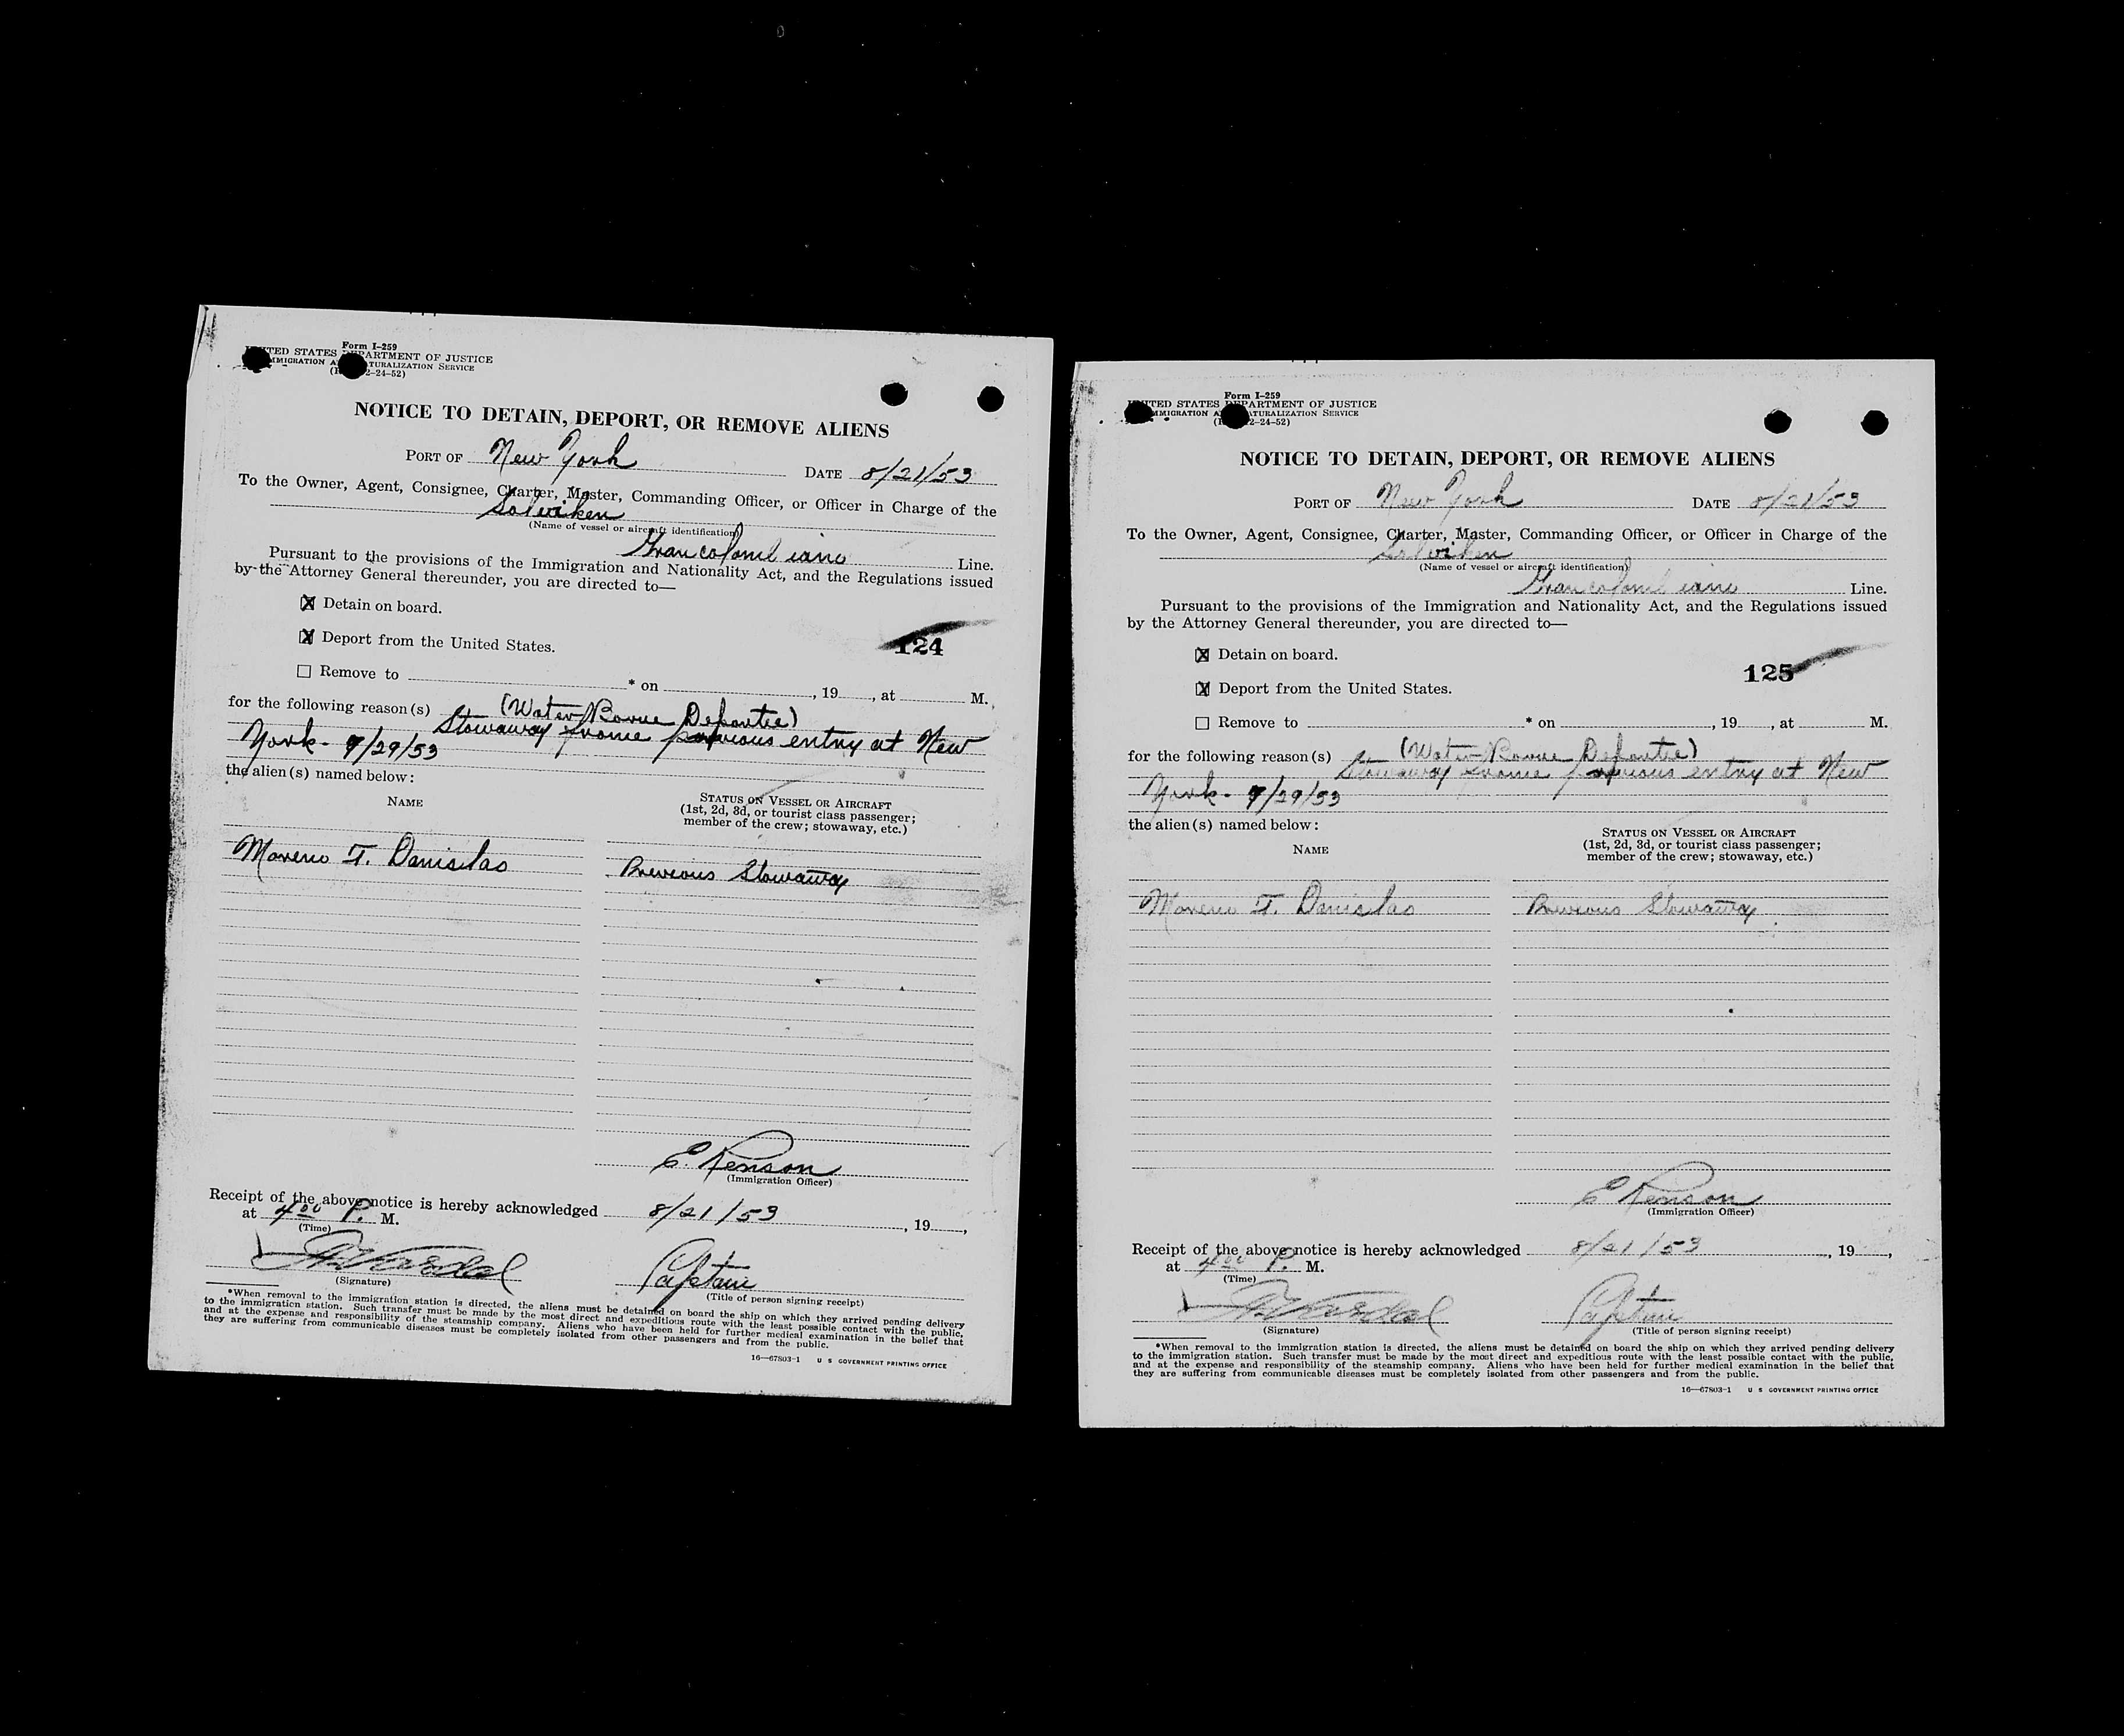 Form I-259
UNITED STATES DEPARTMENT OF JUSTICE
IMMIGRATION A TURALIZATION SERVICE
2-24-52)
NOTICE TO DETAIN, DEPORT, OR REMOVE ALIENS
PORT OF New York DATE 8/21/53
To the Owner, Agent, Consignee, Charter, Master, Commanding Officer, or Officer in Charge of the
Solviken
(Name of vessel or aircraft identification)
Grancolombiano Line.
Pursuant to the provisions of the Immigration and Nationality Act, and the Regulations issued
by the Attorney General thereunder, you are directed to—
☒ Detain on board.
☒ Deport from the United States.
124
☐ Remove to * on , 19 , at M.
for the following reason(s) (Water Bourne Deportee)
Stowaway frome previous entry at New
York - 7/29/53
the alien(s) named below:
NAME
STATUS ON VESSEL OR AIRCRAFT
(1st, 2d, 3d, or tourist class passenger;
member of the crew; stowaway, etc.)
Moreno T. Danislao Previous Stowaway
E. Renson
(Immigration Officer)
Receipt of the above notice is hereby acknowledged 8/21/53 , 19 ,
at 4 00 P. M.
(Time)
Captain
(Signature)
(Title of person signing receipt)
*When removal to the immigration station is directed, the aliens must be detained on board the ship on which they arrived pending delivery
to the immigration station. Such transfer must be made by the most direct and expeditious route with the least possible contact with the public,
and at the expense and responsibility of the steamship company. Aliens who have been held for further medical examination in the belief that
they are suffering from communicable diseases must be completely isolated from other passengers and from the public.
16—67803-1 U S GOVERNMENT PRINTING OFFICE
Form I-259
UNITED STATES DEPARTMENT OF JUSTICE
IMMIGRATION A TURALIZATION SERVICE
2-24-52)
NOTICE TO DETAIN, DEPORT, OR REMOVE ALIENS
PORT OF New York DATE 8/21/53
To the Owner, Agent, Consignee, Charter, Master, Commanding Officer, or Officer in Charge of the
Solviken
(Name of vessel or aircraft identification)
Grancolombiano Line.
Pursuant to the provisions of the Immigration and Nationality Act, and the Regulations issued
by the Attorney General thereunder, you are directed to—
☒ Detain on board.
125
☒ Deport from the United States.
☐ Remove to * on , 19 , at M.
for the following reason(s) (Water Bourne Deportee)
Stowaway frome previous entry at New
York - 7/29/53
the alien(s) named below:
NAME
STATUS ON VESSEL OR AIRCRAFT
(1st, 2d, 3d, or tourist class passenger;
member of the crew; stowaway, etc.)
Moreno T. Danislao Previous Stowaway
E Renson
(Immigration Officer)
Receipt of the above notice is hereby acknowledged 8/21/53 , 19 ,
at 4 00 P. M.
(Time)
Captain
(Signature)
(Title of person signing receipt)
*When removal to the immigration station is directed, the aliens must be detained on board the ship on which they arrived pending delivery
to the immigration station. Such transfer must be made by the most direct and expeditious route with the least possible contact with the public,
and at the expense and responsibility of the steamship company. Aliens who have been held for further medical examination in the belief that
they are suffering from communicable diseases must be completely isolated from other passengers and from the public.
16—67803-1 U S GOVERNMENT PRINTING OFFICE